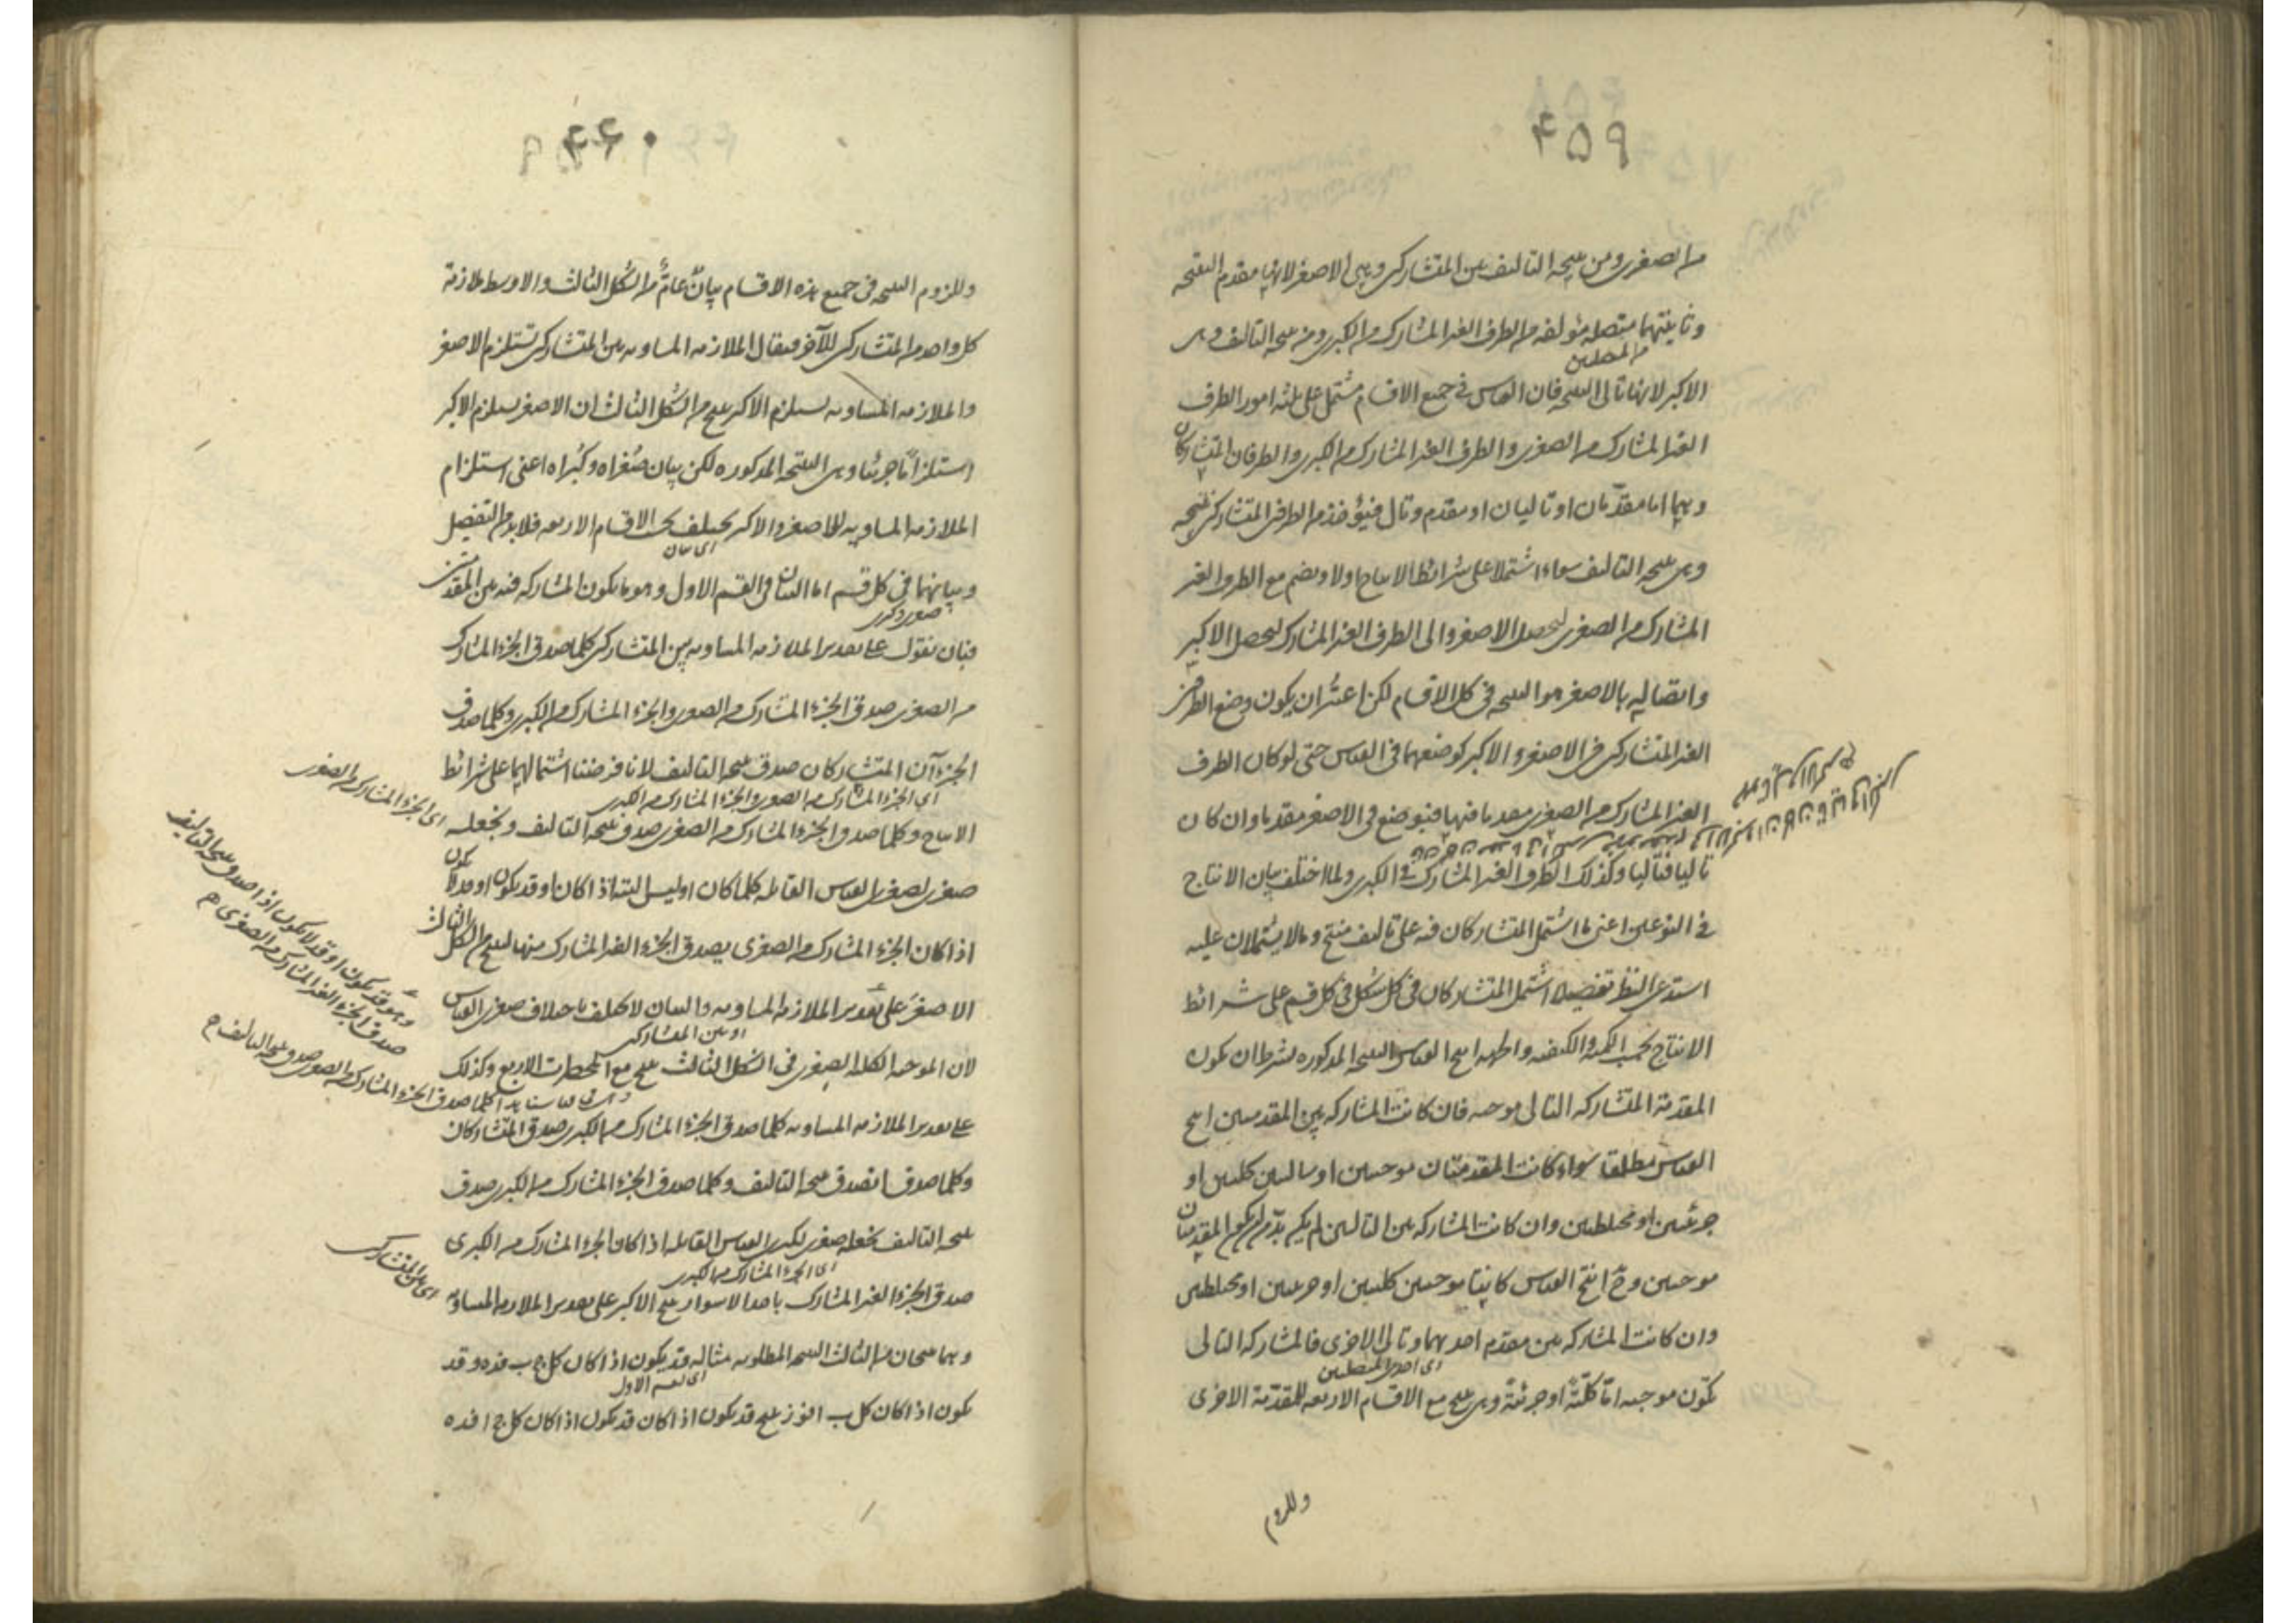 ۴۵۹
من الصغرى ومن نتيجة التاليف بين المتشاركين وهى الاصغر لانها مقدم النتيجة
وثانيتهما متصلة مؤلفة من الطرف الغير المشارك من الكبرى ومن نتيجة التاليف وهى
من المتصلتين
الاكبر لانها تالى النتيجة فان القياس فى جميع الاقسام مشتمل على ثلثة امور الطرف
الغير المشارك من الصغرى والطرف الغير المشارك من الكبرى والطرفان المتشاركان
وهما اما مقدمان او تاليان او مقدم وتال فيؤخذ من الطرفين المتشاركين نتيجة
وهى نتيجة التاليف سواء اشتملا على شرائط الانتاج اولا ويضم مع الطرف الغير
المشارك من الصغرى ليحصل الاصغر والى الطرف الغير المشارك ليحصل الاكبر
واتصاله بالاصغر هو النتيجة فى كل الاقسام لكن اعتبر ان يكون وضع الطرفين
الغير المتشاركين فى الاصغر والاكبر كوضعهما فى القياس حتى لو كان الطرف
الغير المشارك من الصغرى مقدما فيها فيوضع فى الاصغر مقدما وان كان
تاليا فتاليا وكذلك الطرف الغير المشارك فى الكبرى ولما اختلف بيان الانتاج
فى النوعين اعنى ما اشتمل المتشاركان فيه على تاليف منتج وما لا يشتملان عليه
استدعى النظر تفصيلا اشتمل المتشاركان فى كل شكل فى كل قسم على شرائط
الانتاج بحسب الكمية والكيفية واطهه انتج القياس النتيجة المذكورة بشرط ان يكون
المقدمة المتشاركة التالى موجبة فان كانت المشاركة بين المقدمين انتج
القياس مطلقا سواء كانت المقدمتان موجبتين او سالبتين كليتين او
جزئيتين او مختلطتين وان كانت المشاركة بين التاليين لم يكن بد من كون المقدمتان
موجبتين وح انتج القياس كانتا موجبتين كليتين او جزئيتين او مختلطتين
وان كانت المشاركة بين مقدم احديهما وتالى الاخرى فالمشاركة التالى
اى احدى المتصلتين
تكون موجبة اما كلية او جزئية وهى تنتج مع الاقسام الاربعة للمقدمة الاخرى
وللزوم
۴۶۰
وللزوم النتيجة فى جميع هذه الاقسام بيان عام من الشكل الثالث والاوسط ملازمة
كل واحد من المتشاركين للآخر فيقال الملازمة المساوية بين المتشاركين تستلزم الاصغر
والملازمة المساوية تستلزم الاكبر ينتج من الشكل الثالث ان الاصغر يستلزم الاكبر
استلزاما جزئيا وهى النتيجة المذكورة لكن بيان صغراه وكبراه اعنى استلزام
الملازمة المساوية للاصغر والاكبر يختلف بحسب الاقسام الاربعة فلا بد من التفصيل
اى بيان
وبيانهما فى كل قسم اما البيان فى القسم الاول وهو ما يكون المشاركة فيه بين المقدمتين
صغرى وكبرى
فبان نقول على تقدير الملازمة المساوية بين المتشاركين كلما صدق الجزء المشارك
من الصغرى صدق الجزء المشارك من الصغرى والجزء المشارك من الكبرى وكلما صدق
الجزءآن المتشاركان صدق نتيجة التاليف لانا فرضنا اشتمالهما على شرائط
اى الجزء المشارك من الصغرى والجزء المشارك من الكبرى
الانتاج وكلما صدق الجزء المشارك من الصغرى صدق نتيجة التاليف ونجعله
اى الجزء المشارك من الصغرى
صغرى لصغرى القياس القائلة كلما كان او ليس البتة اذا كان او قد يكون او قد لا يكون
اذا كان الجزء المشارك من الصغرى يصدق الجزء الغير المشارك منها لينتج من الشكل الثالث
الاصغر على تقدير الملازمة المساوية والبيان لا يختلف باختلاف صغرى القياس
او بين المتشاركين
لان الموجبة الكلية الصغرى فى الشكل الثالث تنتج مع المحصورات الاربع وكذلك
على تقدير الملازمة المساوية كلما صدق الجزء المشارك من الكبرى صدق المتشاركان
وكلما صدقا تصدق نتيجة التاليف وكلما صدق الجزء المشارك من الكبرى صدق
نتيجة التاليف نجعله صغرى لكبرى القياس القائلة اذا كان الجزء المشارك من الكبرى
اى الجزء المشارك من الكبرى
صدق الجزء الغير المشارك باحد الاسوار ينتج الاكبر على تقدير الملازمة المساوية
اى بين المتشاركين
وهما ينتجان من الثالث النتيجة المطلوبة مثاله قد يكون اذا كان كل ج ب فده وقد
اى القسم الاول
يكون اذا كان كل ب ا فوز ينتج قد يكون اذا كان قد يكون اذا كان كل ج ا فده
وهو قد يكون او قد لا يكون اذا صدق نتيجة التاليف
صدق الجزء الغير المشارك من الصغرى م
كلما صدق الجزء المشارك من الصغرى صدق نتيجة التاليف م